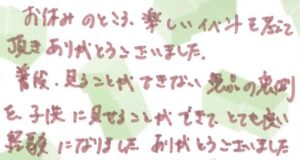 お休みのところ、楽しいイベントを考えて
頂きありがとうございました。
普段、見ることができない の裏側
を、子供に見せることができて、とても良い
経験になりました ありがとうございました